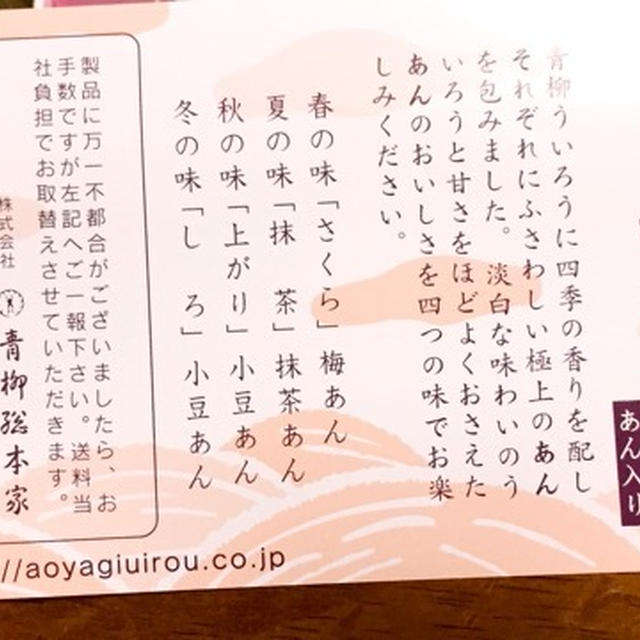 あん入り
青柳ういろうに四季の香りを配し
それぞれにふさわしい極上のあん
を包みました。淡白な味わいのう
いろうと甘さをほどよくおさえた
あんのおいしさを四つの味でお楽
しみください。
春の味「さくら」梅あん
夏の味「抹 茶」抹茶あん
秋の味「上がり」小豆あん
冬の味「し ろ」小豆あん
製品に万一不都合がございましたら、お
手数ですが左記へご一報下さい。送料当
社負担でお取替えさせていただきます。
株式会社 青柳総本家
//aoyagiuirou.co.jp